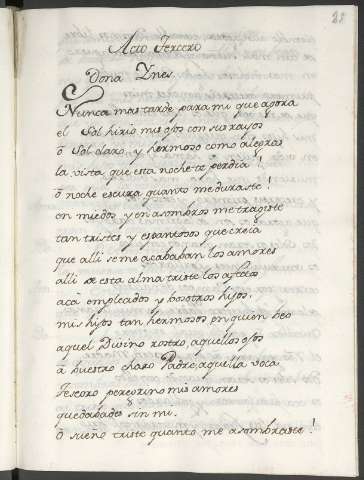 Acto Tercero
Dona Ynes.
Nunca mas tarde para mi que agora
el Sol hirio mis ojos con sus rayos
ò Sol claro, y hermoso como alegras
la vista, que esta noche te perdia!
ò noche escura quanto me duraste!
en miedos y en asombros me tragiste
tan tristes y espantosos que creia
que alli se me acababan los amores
alli de esta alma triste los afectos
acà empleados y bosotros hijos,
mis hijos tan hermosos en quien beo
aquel Divino rostro, aquellos ojos
à buestro charo Padre, aquella voca
Tesoro peregrino mis amores
quedabades sin mi.
ò sueño triste quanto me asombraste!